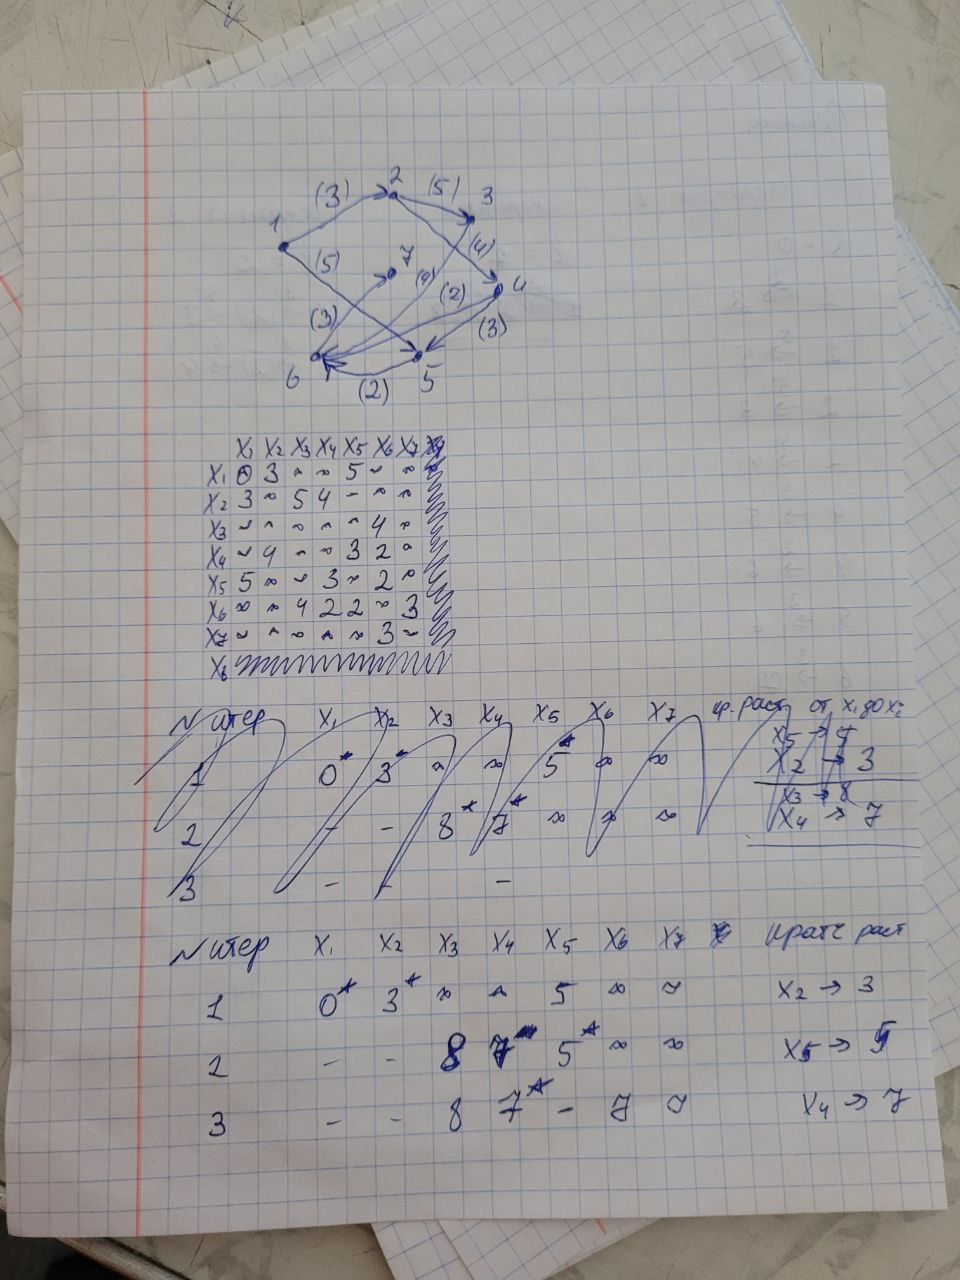 2
(3)
(5)
3
1
(5)
7
(4)
(4)
(2)
4
(3)
(3)
6
5
(2)
X₁ X₂ X₃ X₄ X₅ X₆ X₇
X₁ 0 3 ∞ ∞ 5 ∞ ∞
X₂ 3 ∞ 5 4 ∞ ∞ ∞
X₃ ∞ ∞ ∞ ∞ ∞ 4 ∞
X₄ ∞ 4 ∞ ∞ 3 2 ∞
X₅ 5 ∞ ∞ 3 ∞ 2 ∞
X₆ ∞ ∞ 4 2 2 ∞ 3
X₇ ∞ ∞ ∞ ∞ ∞ 3 ∞
X₈
N итер X₁ X₂ X₃ X₄ X₅ X₆ X₇ кр. раст от X₁ до Xi
X₅ → 5
1 0* 3* ∞ ∞ 5* ∞ ∞ X₂ → 3
X₃ → 8
2 - - 8* 7* ∞ ∞ ∞ X₄ → 7
3 - - -
N итер X₁ X₂ X₃ X₄ X₅ X₆ X₇ кратч раст
1 0* 3* ∞ ∞ 5 ∞ ∞ X₂ → 3
2 - - 8 7 5* ∞ ∞ X₅ → 5
3 - - 8 7* - 7 ∞ X₄ → 7